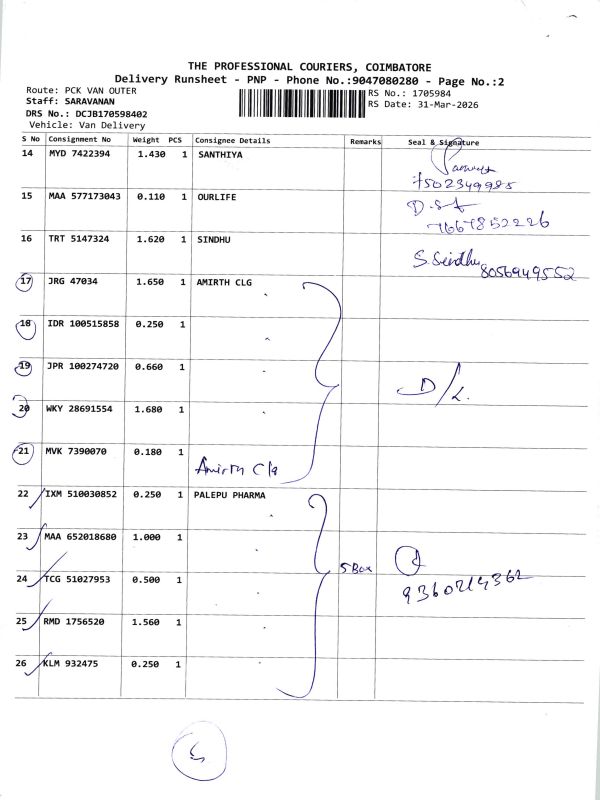 THE PROFESSIONAL COURIERS, COIMBATORE
Delivery Runsheet - PNP - Phone No.:9047080280 - Page No.:2
Route: PCK VAN OUTER
RS No.: 1705984
Staff: SARAVANAN
RS Date: 31-Mar-2026
DRS No.: DCJB170598402
Vehicle: Van Delivery
S No Consignment No Weight PCS Consignee Details Remarks Seal & Signature
14 MYD 7422394 1.430 1 SANTHIYA
7502349985
15 MAA 577173043 0.110 1 OURLIFE
7667852226
16 TRT 5147324 1.620 1 SINDHU S. Sindhu
8056949552
17 JRG 47034 1.650 1 AMIRTH CLG
18 IDR 100515858 0.250 1
19 JPR 100274720 0.660 1
20 WKY 28691554 1.680 1
21 MVK 7390070 0.180 1
Amirth Clg
22 IXM 510030852 0.250 1 PALEPU PHARMA
23 MAA 652018680 1.000 1
5 Box
24 TCG 51027953 0.500 1
9360214362
25 RMD 1756520 1.560 1
26 KLM 932475 0.250 1